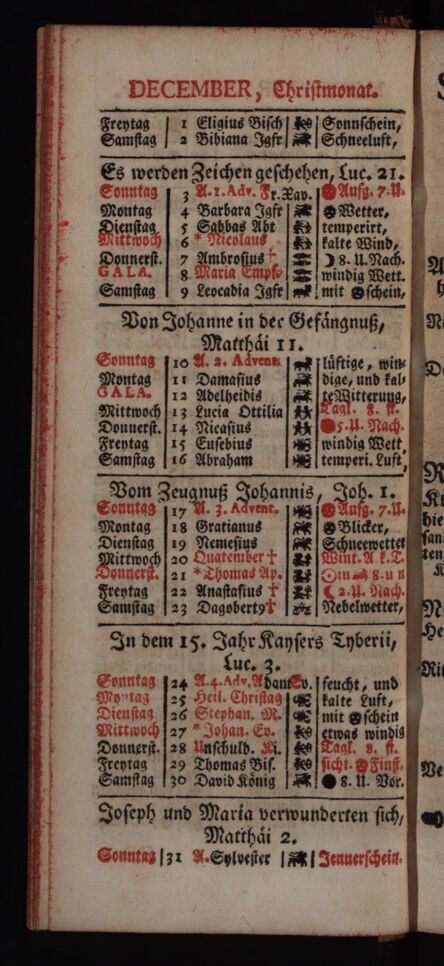 DECEMBER, Christmonat.
Freytag 1 Eligius Bisch Sonnschein,
Samstag 2 Bibiana Jgfr Schneeluft,
Es werden Zeichen geschehen, Luc. 21.
Sonntag 3 A. 1. Adv. Fr. Xav. Aufg. 7. U.
Montag 4 Barbara Jgfr Wetter,
Dienstag 5 Sabbas Abt temperirt,
Mittwoch 6 * Nicolaus kalte Wind,
Donnerst. 7 Ambrosius † ☽ 8. U. Nach.
GALA. 8 Maria Empf. windig Wett.
Samstag 9 Leocadia Jgfr mit schein,
Von Johanne in der Gefängnuß,
Matthäi 11.
Sonntag 10 A. 2. Advent. lüftige, win-
Montag 11 Damasius dige, und kal-
GALA. 12 Adelheidis te Witterung,
Mittwoch 13 Lucia Ottilia Tagl. 8. st.
Donnerst. 14 Nicasius 5. U. Nach.
Freytag 15 Eusebius windig Wett
Samstag 16 Abraham temperi. Luft
Vom Zeugnuß Johannis, Joh. 1.
Sonntag 17 A. 3. Advent. Aufg. 7. U.
Montag 18 Gratianus Blicker,
Dienstag 19 Nemesius Schneewetter
Mittwoch 20 Quatember † Wint. A. k. T.
Donnerst. 21 * Thomas Ap. ☉ in 8. u n
Freytag 22 Anastasius † ☾ 2. U. Nach.
Samstag 23 Dagobert9 † Nebelwetter,
In dem 15. Jahr Kaysers Tyberii,
Luc. 3.
Sonntag 24 A. 4. Adv. Adam Ev. feucht, und
Montag 25 Heil. Christag kalte Luft,
Dienstag 26 Stephan. M. mit schein
Mittwoch 27 * Johan. Ev. etwas windig
Donnerst. 28 Unschuld. Ki. Tagl. 8. st.
Freytag 29 Thomas Bis. sicht. Finst.
Samstag 30 David König 8. U. Vor.
Joseph und Maria verwunderten sich,
Matthäi 2.
Sonntag 31 A. Sylvester Jennerschein.